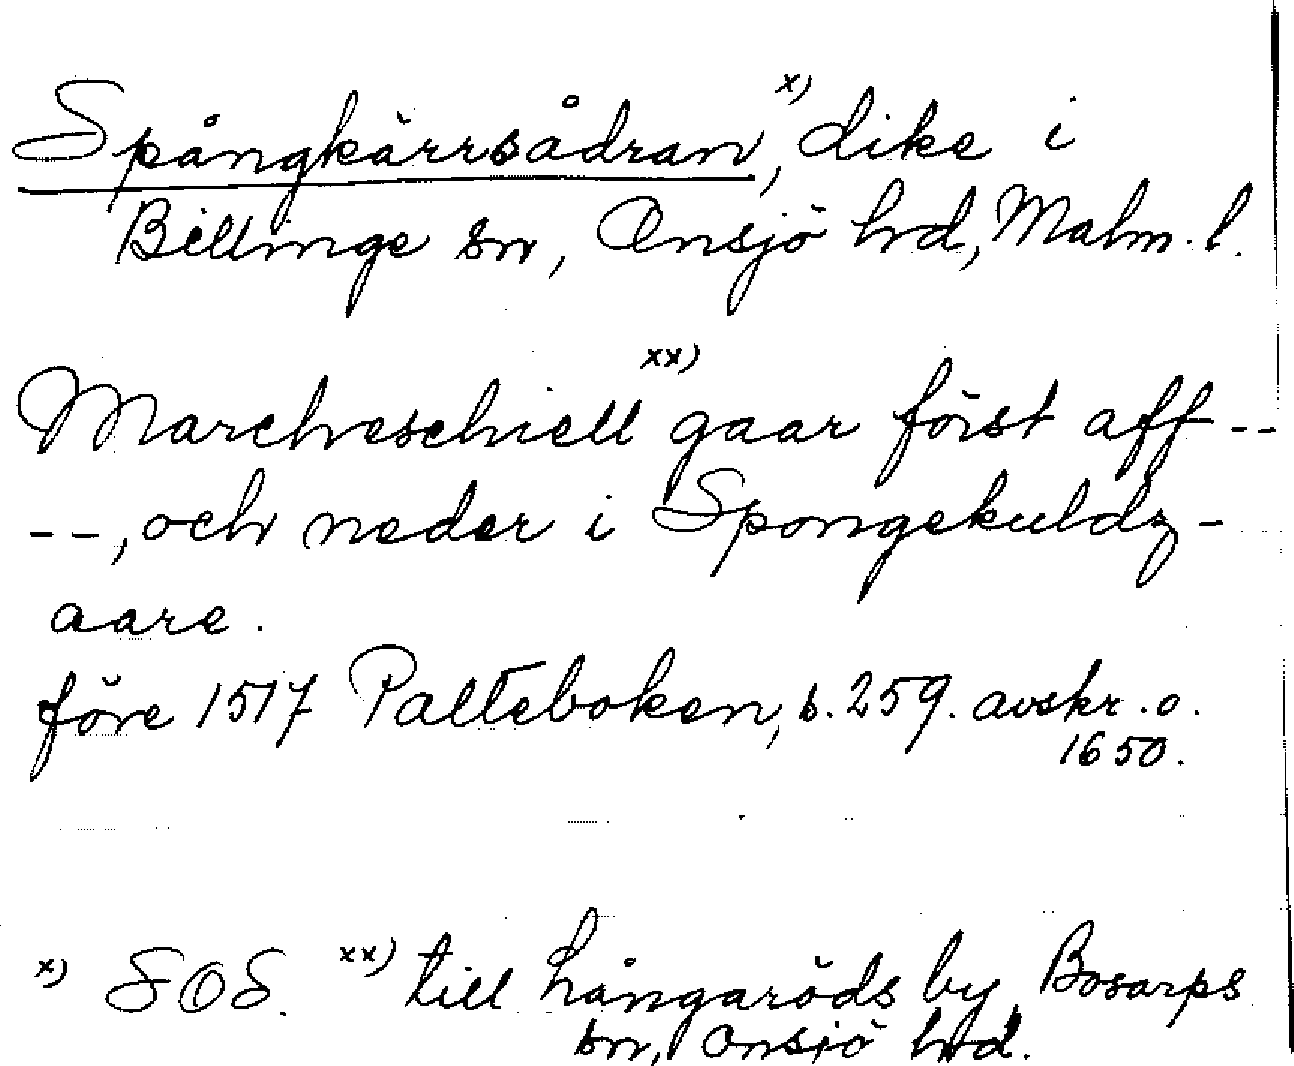 Spångkärrsådran,ˣ⁾ dike i
Billinge sn, Onsjö hd, Malm. l.
Marcheschiellˣˣ⁾ gaar först aff --
--, och neder i Spongekuldz-
aare.
före 1517 Palteboken, s. 259. avskr. o.
1650.
x) SOS. xx) till Långaröds by, Bosarps
sn, Onsjö hd.